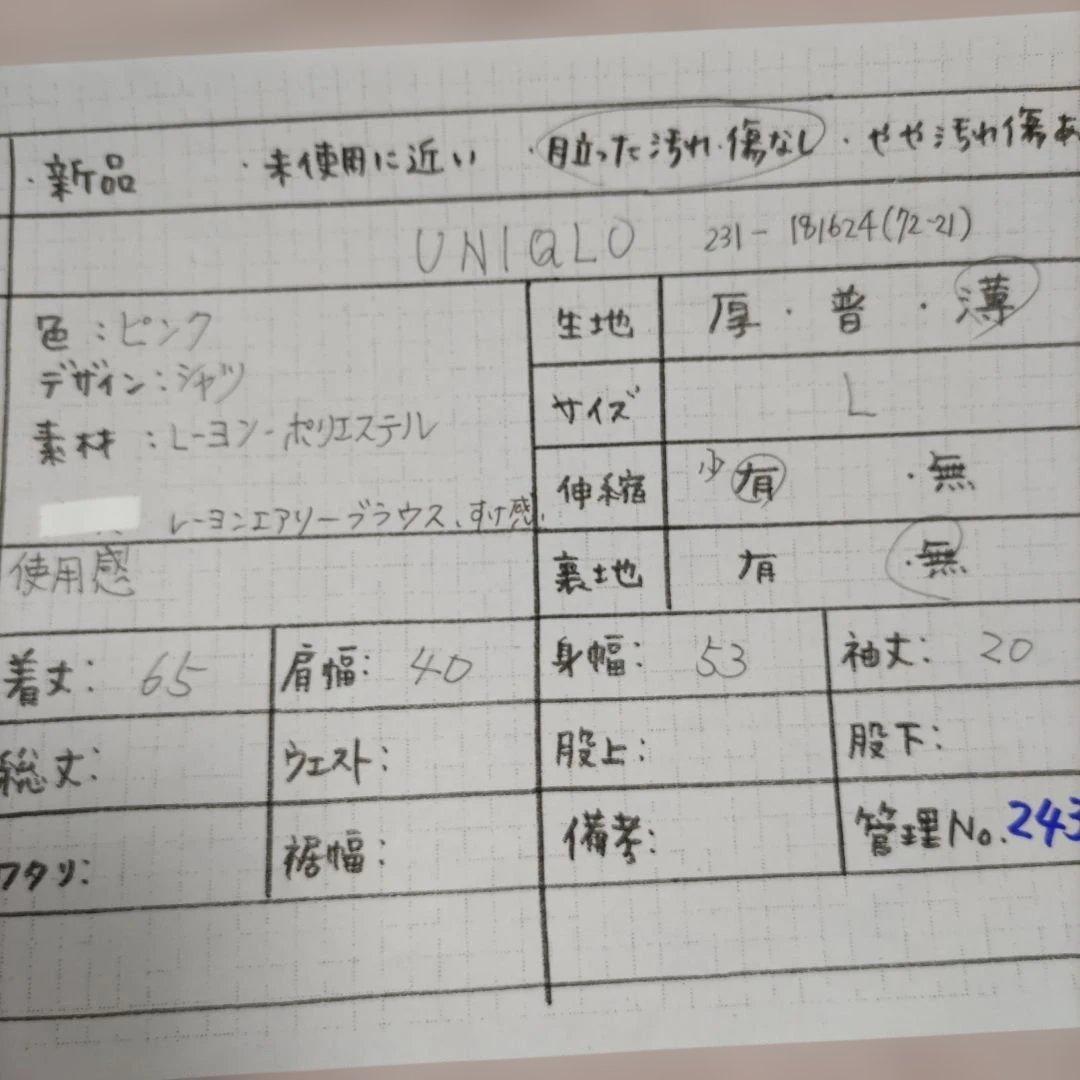 ・新品 ・未使用に近い ・目立った汚れ・傷なし ・やや汚れ傷あ
UNIQLO 231-181624(72-21)
色：ピンク
デザイン：シャツ
素材：レーヨン・ポリエステル
レーヨンエアリーブラウス、すけ感、
使用感
生地 厚・普・薄
サイズ L
伸縮 少 有・無
裏地 有・無
着丈：65 肩幅：40 身幅：53 袖丈：20
総丈： ウエスト： 股上： 股下：
ワタリ： 裾幅： 備考： 管理No.243